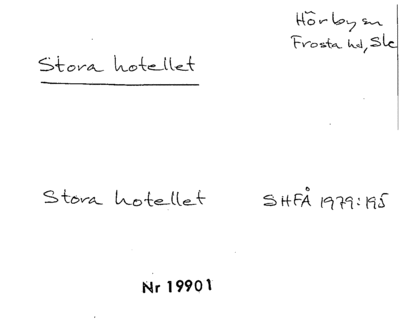 Hörby sn
Frosta hd, Sk
Stora hotellet
Stora hotellet SHFÅ 1979:195
Nr 19901